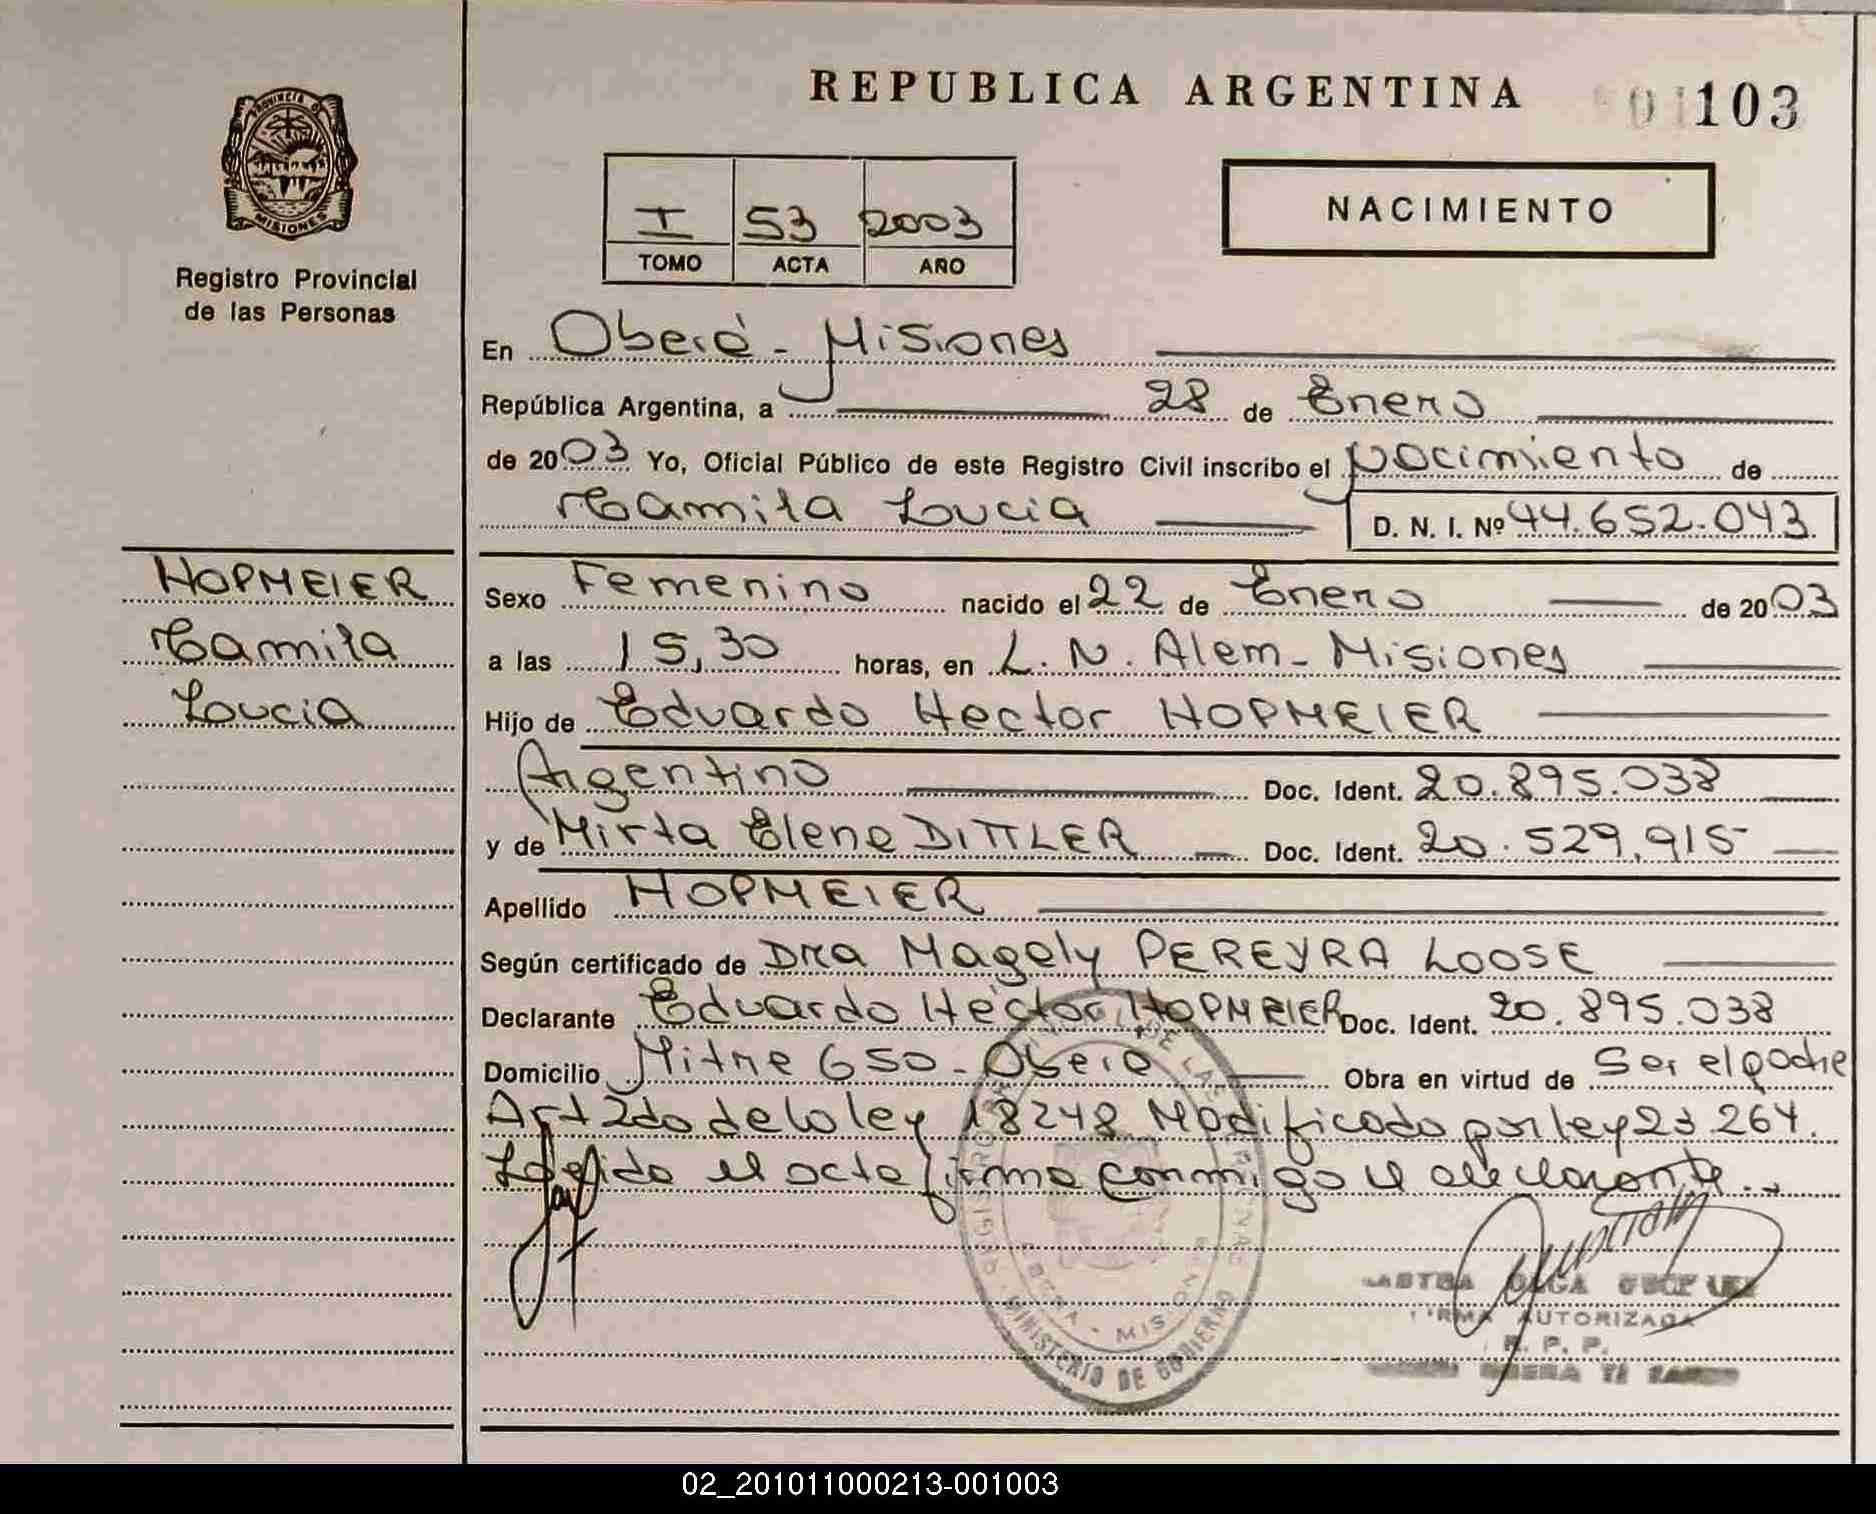 REPUBLICA ARGENTINA
103
PROVINCIA DE
MISIONES
Registro Provincial
de las Personas
I 53 2003
TOMO ACTA AÑO
NACIMIENTO
En Oberá - Misiones
República Argentina, a 28 de Enero
de 2003 Yo, Oficial Público de este Registro Civil inscribo el nacimiento de
Camila Lucia D. N. I. Nº 44.652.043
HOPMEIER
Camila
Lucia
Sexo Femenino nacido el 22 de Enero de 2003
a las 15,30 horas, en L. N. Alem - Misiones
Hijo de Eduardo Hector HOPMEIER
Argentino Doc. Ident. 20.895.038
y de Mirta Elena DITTLER Doc. Ident. 20.529.915
Apellido HOPMEIER
Según certificado de Dra Magaly PEREYRA LOOSE
Declarante Eduardo Hector HOPMEIER Doc. Ident. 20.895.038
Domicilio Mitre 650 - Oberá Obra en virtud de Ser el padre
Art 2do de la ley 18248 Modificado por ley 23264.
Leída el acta firma conmigo el declarante.
MINISTERIO DE GOBIERNO
OLGA
FIRMA AUTORIZADA
R. P. P.
02_201011000213-001003